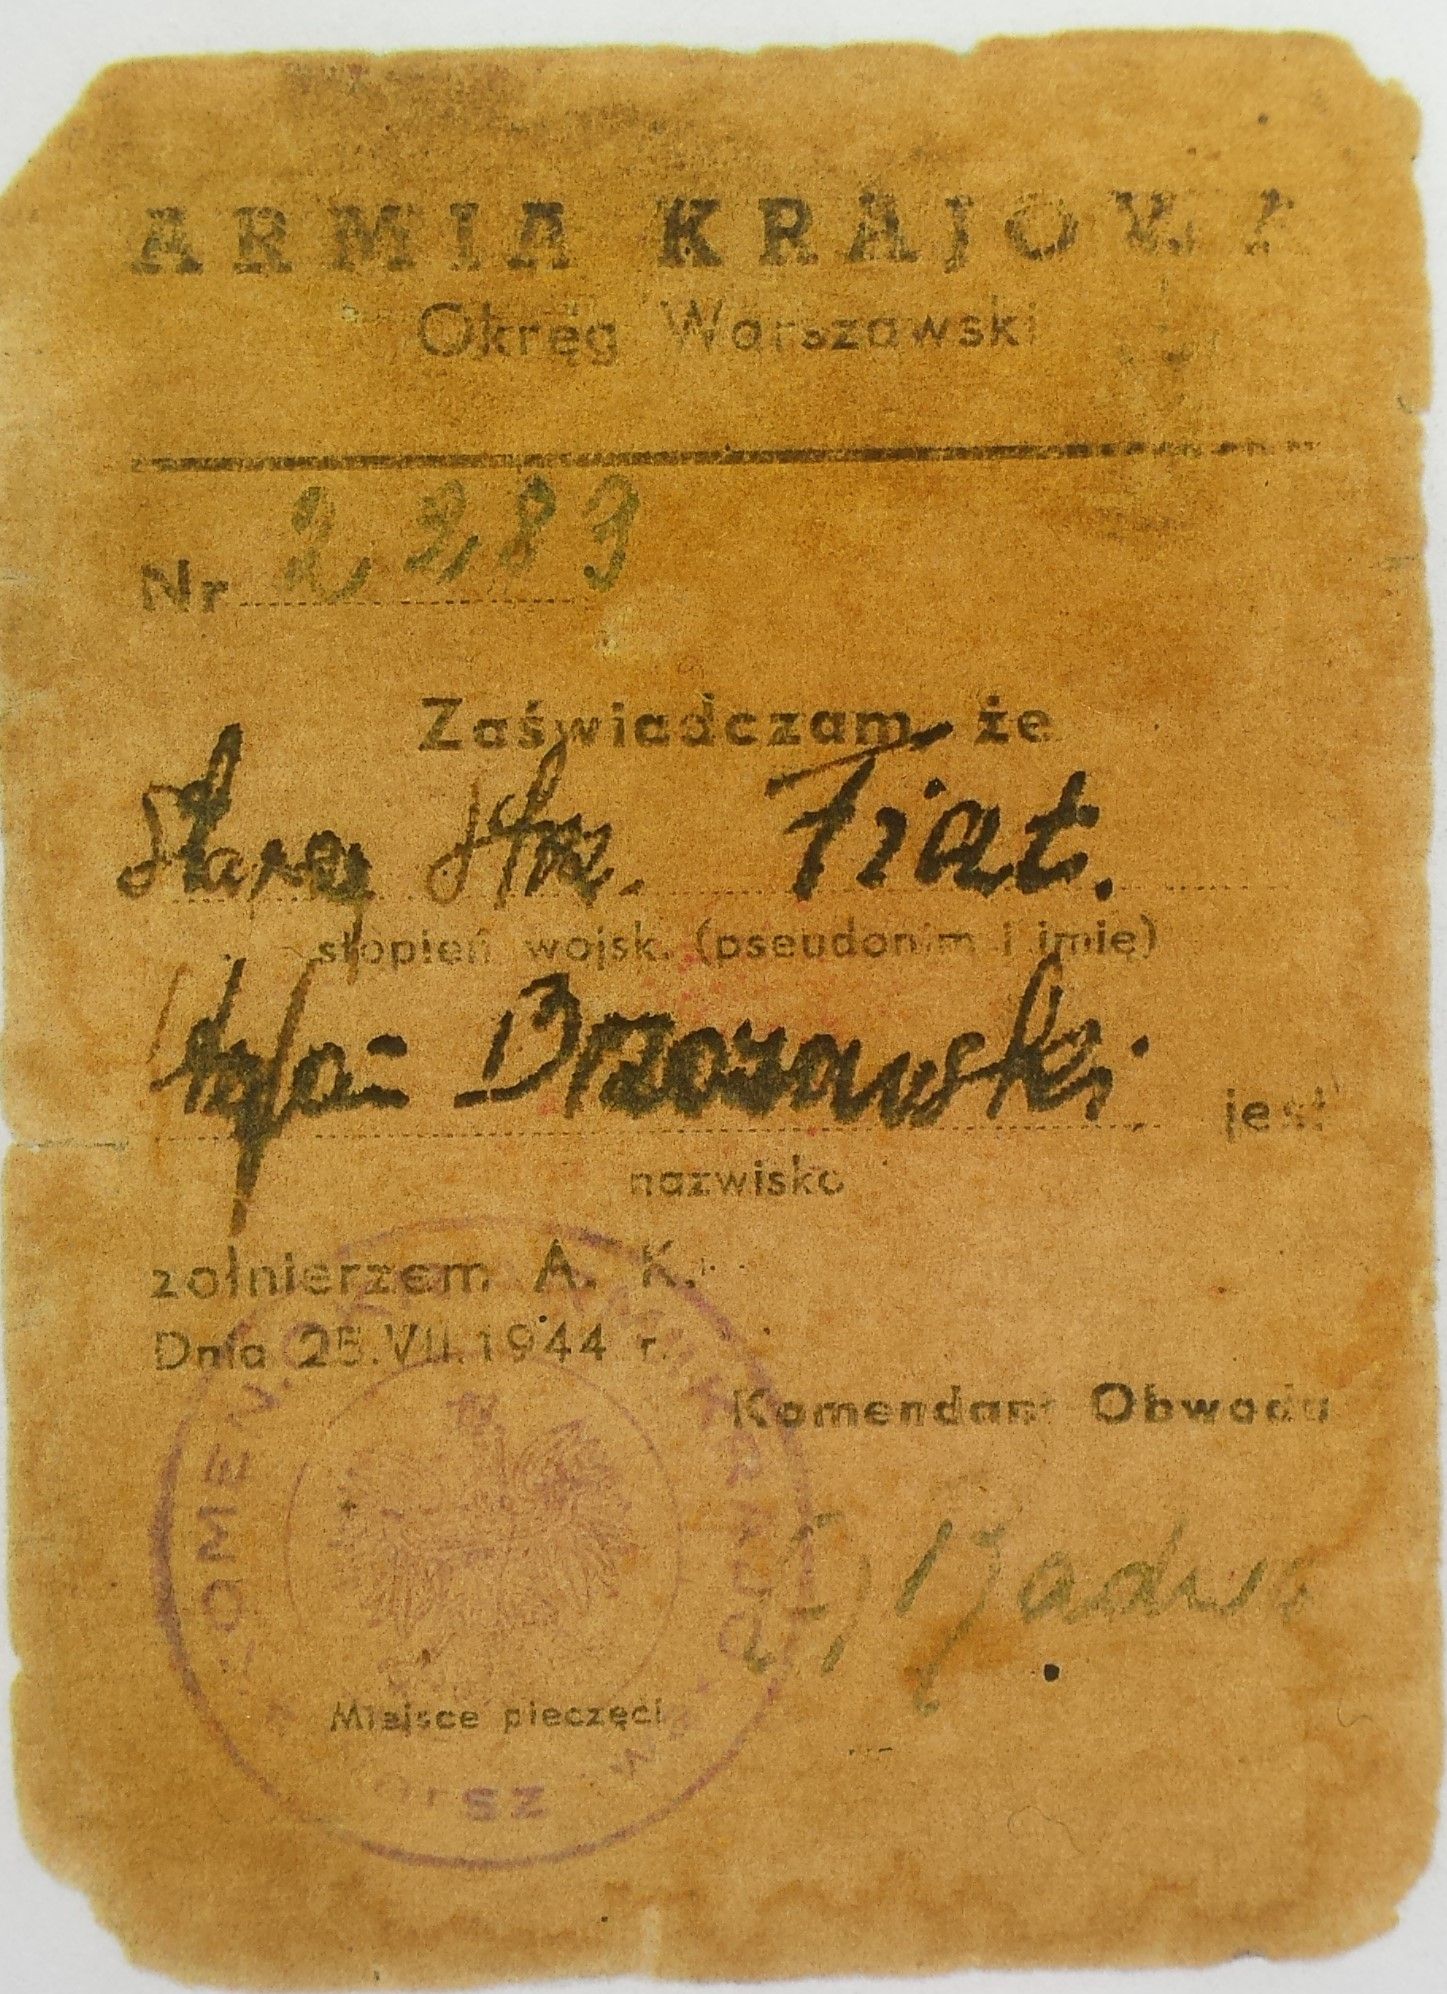 ARMIA KRAJOWA
Okręg Warszawski
Nr 2283
Zaświadczam, że
Starszy strz. Fiat.
stopień wojsk. (pseudonim i imię)
Stefan Brzozowski jest
nazwisko
żołnierzem A. K.
Dnia 25.VII.1944 r.
Komendant Obwodu
Miejsce pieczęci